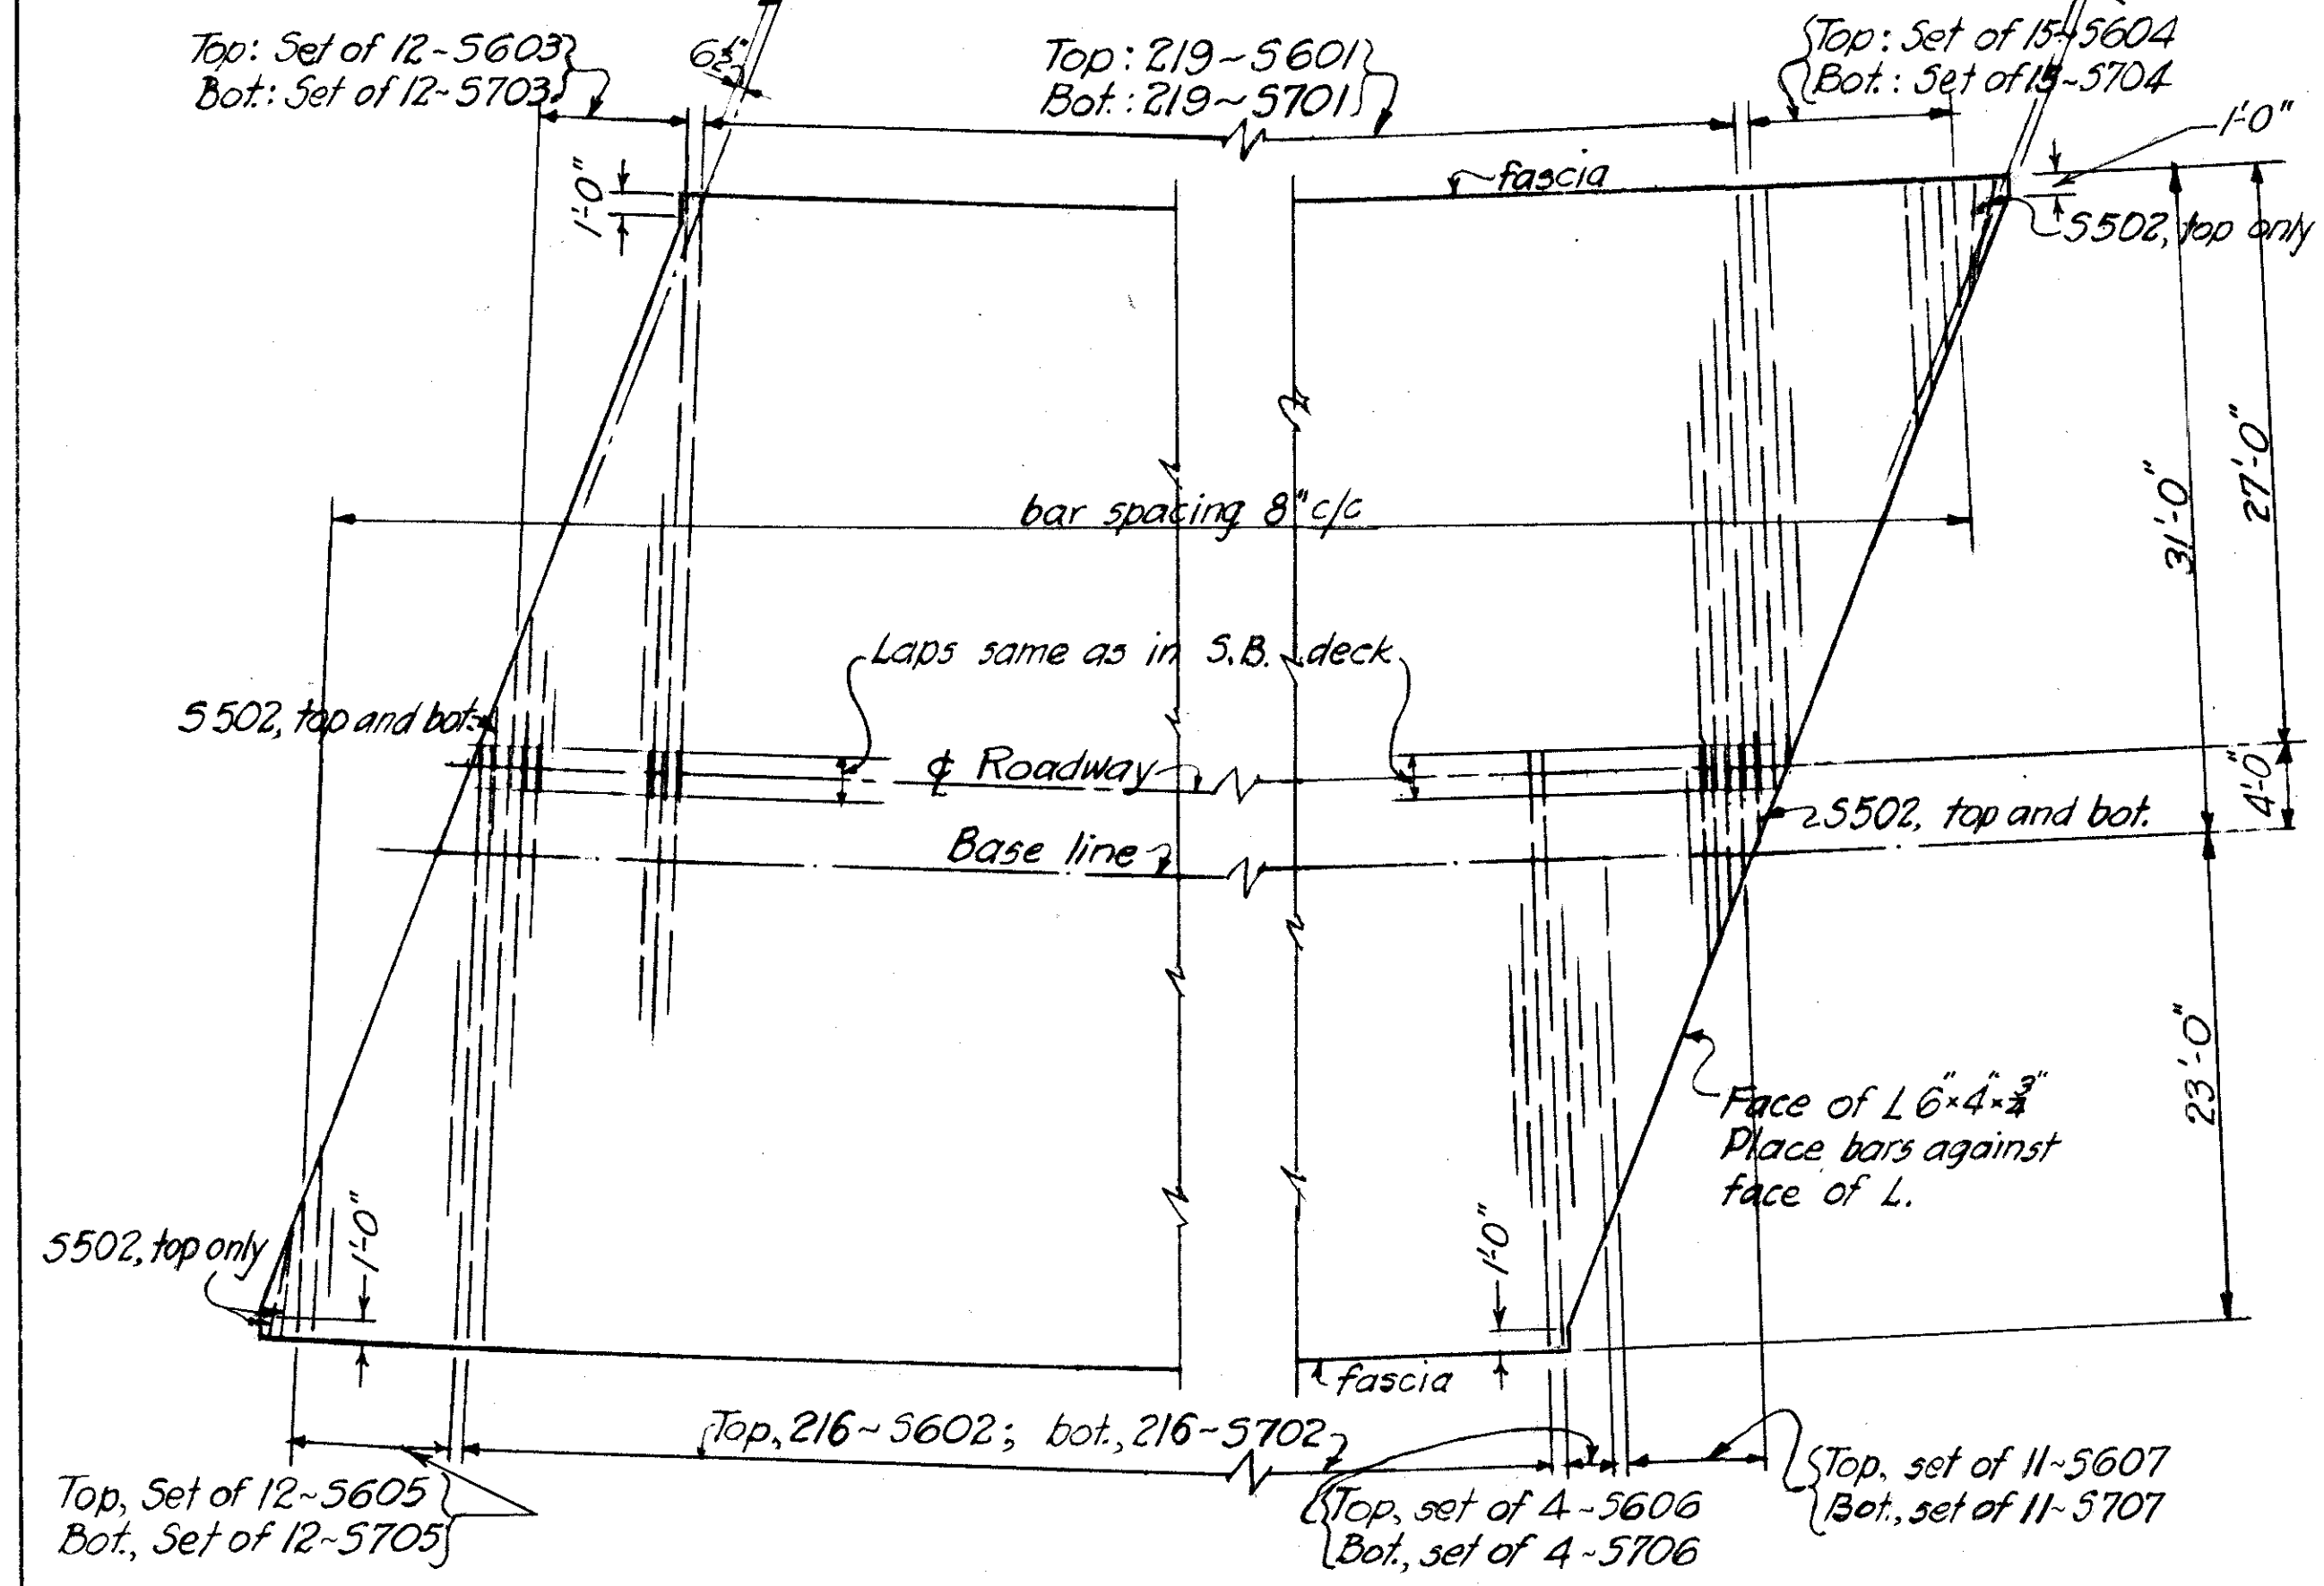 Top: Set of 12~S603
Bot.: Set of 12~S703
6½"
Top: 219~S601
Bot.: 219~S701
Top: Set of 15~S604
Bot.: Set of 15~S704
1'-0"
1'-0"
fascia
S502, top only
bar spacing 8" c/c
31'-0"
27'-0"
Laps same as in S.B. deck
S502, top and bot.
℄ Roadway
4'-0"
S502, top and bot.
Base line
23'-0"
Face of L 6"×4"×¾"
Place bars against
face of L.
S502, top only
1'-0"
1'-0"
fascia
Top, 216~S602; bot., 216~S702
Top, Set of 12~S605
Bot., Set of 12~S705
Top, set of 4~S606
Bot., set of 4~S706
Top, set of 11~S607
Bot., set of 11~S707